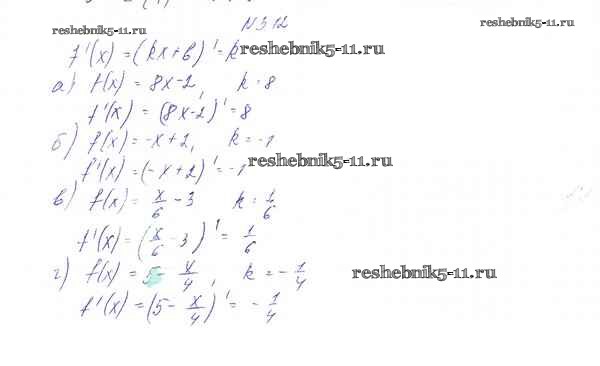 N 312
reshebnik5-11.ru reshebnik5-11.ru
f'(x) = (kx+b)' = k reshebnik5-11.ru
а) f(x) = 8x-2, k=8
f'(x) = (8x-2)' = 8
б) f(x) = -x+2, k=-1
f'(x) = (-x+2)' = -1 reshebnik5-11.ru
в) f(x) = x/6 - 3 k = 1/6
f'(x) = (x/6 - 3)' = 1/6
г) f(x) = 5 - x/4, k = -1/4 reshebnik5-11.ru
f'(x) = (5 - x/4)' = -1/4